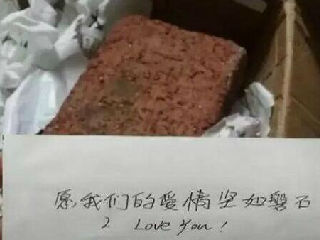 愿我们的爱情坚如磐石
I Love You!